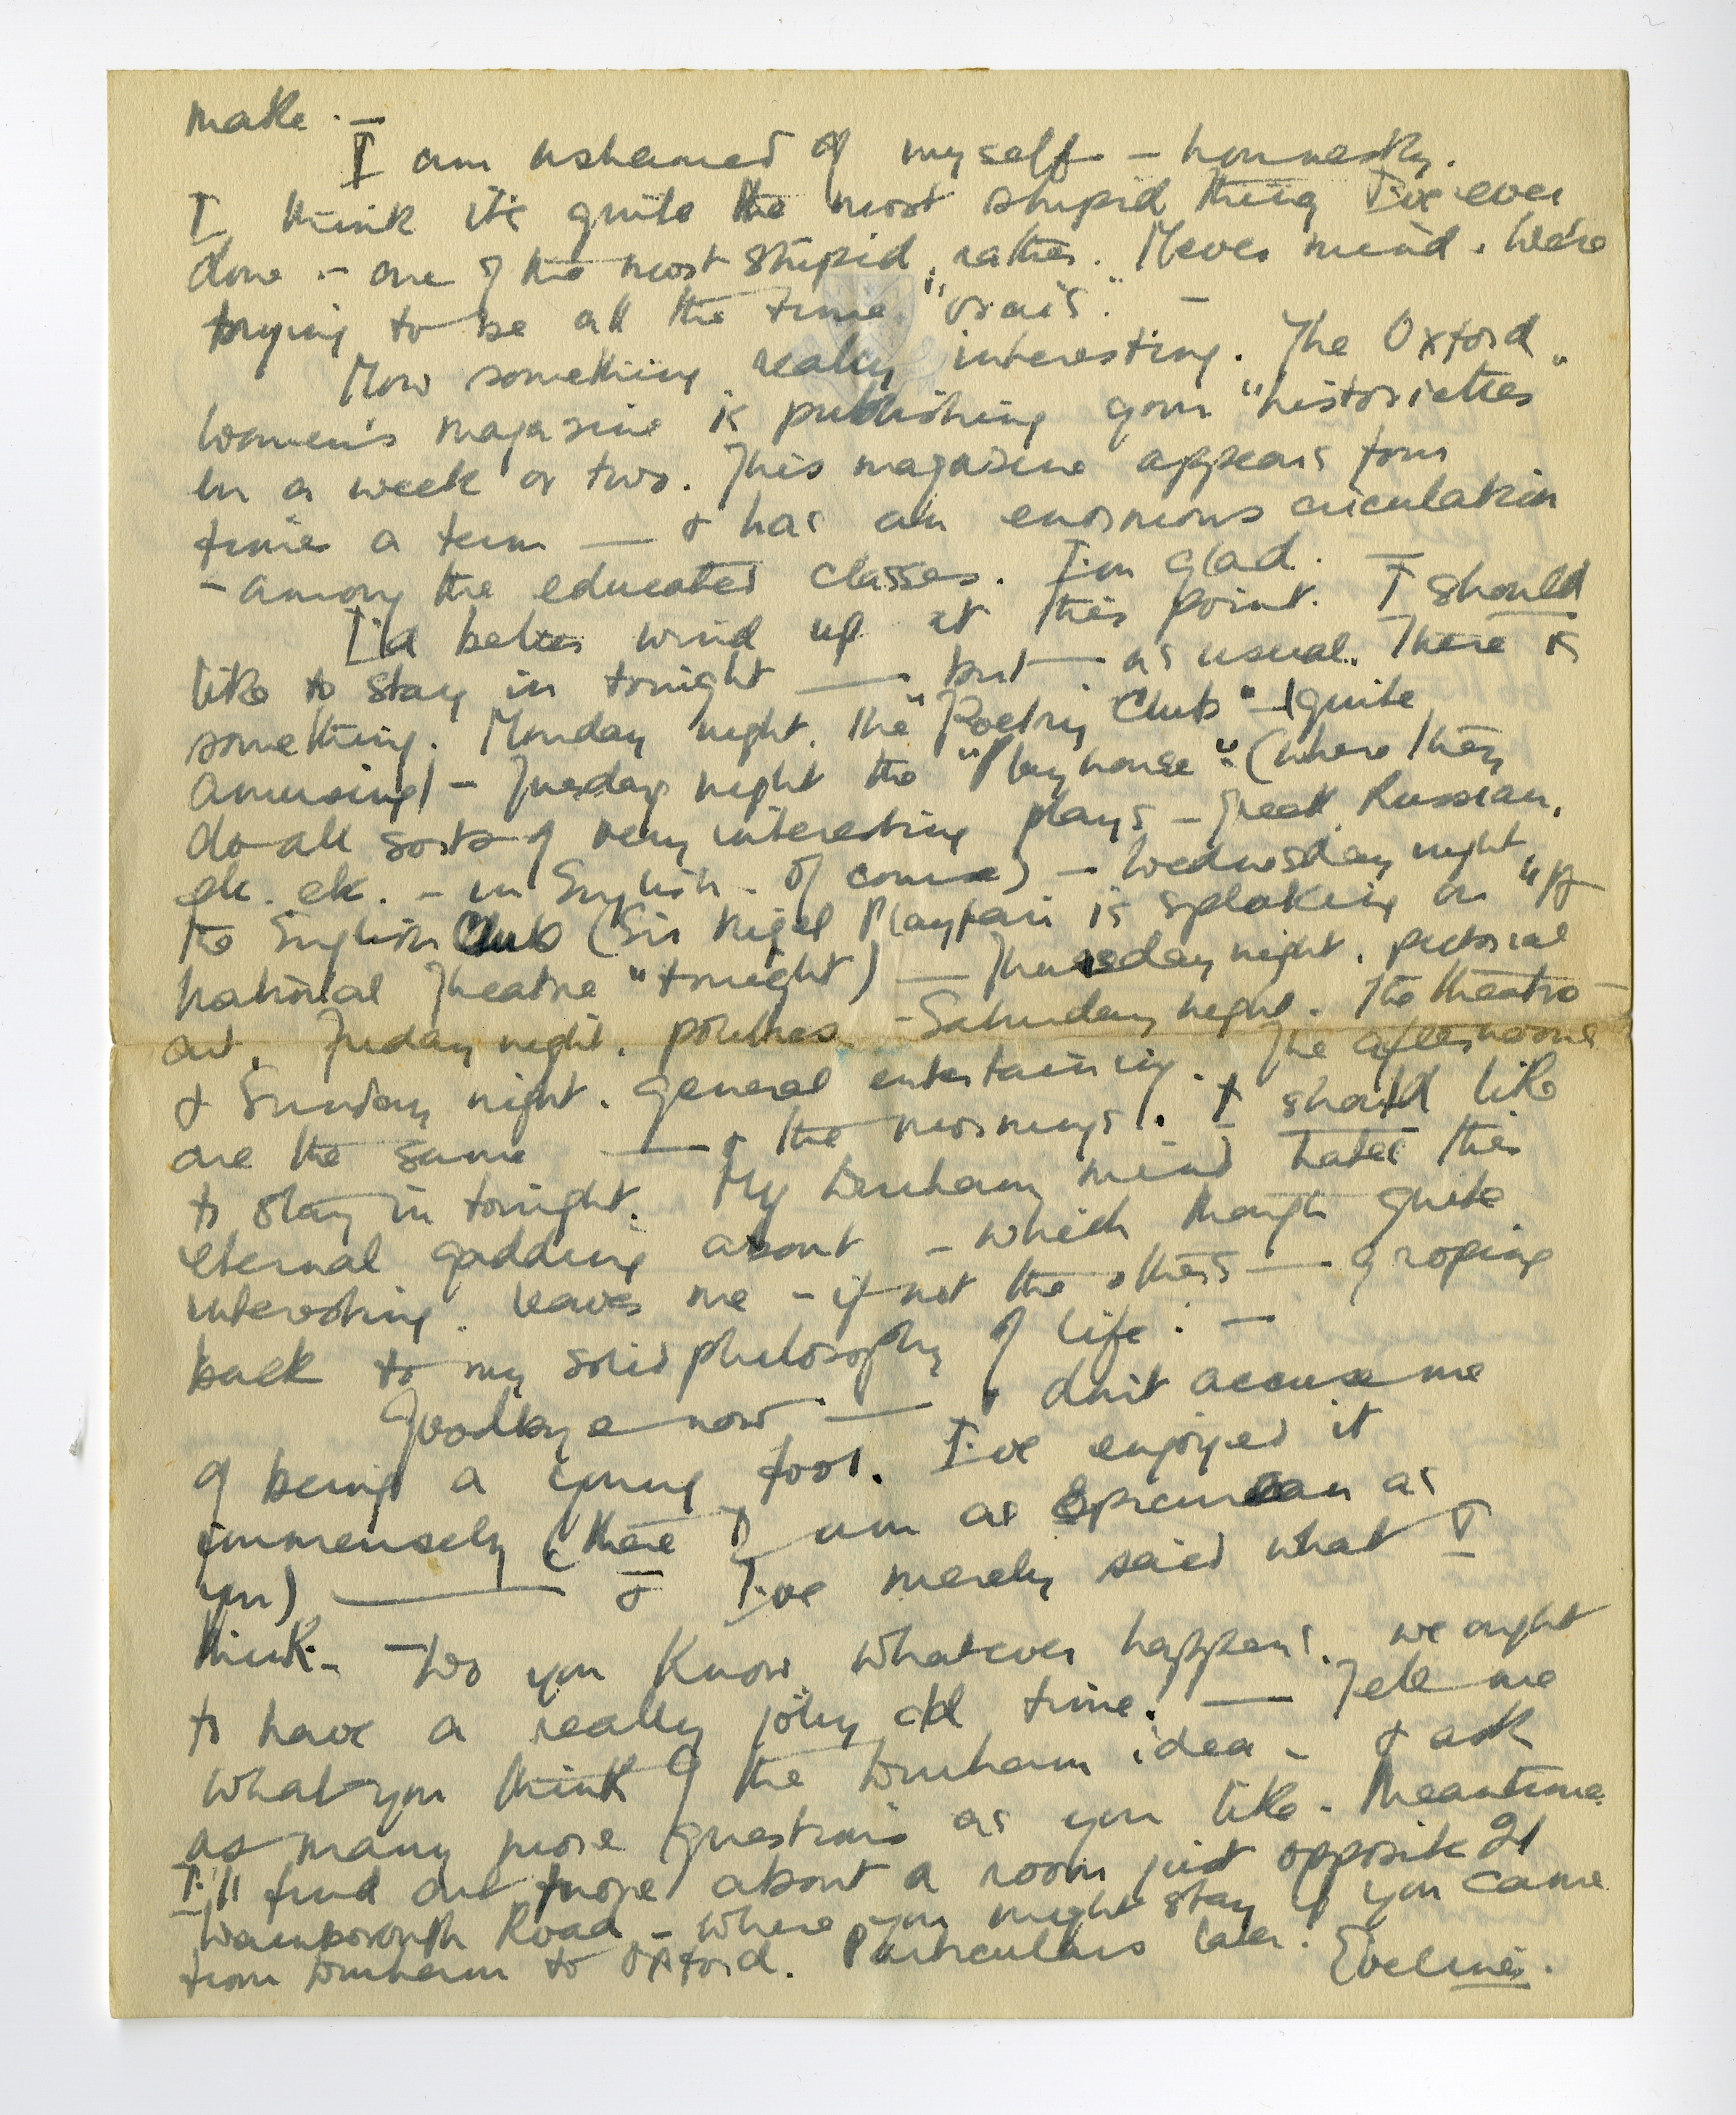 make. —
I am ashamed of myself — honnestly.
I think it's quite the most stupid thing I've ever
done — one of the most stupid, rather. Never mind. We're
trying to be all the time "vrais". —
Now something really interesting. The Oxford
Women's magazine is publishing your "historiettes"
in a week or two. This magazine appears four
times a term — & has an enormous circulation
— among the educated classes. I'm glad. —
I'd better wind up at this point. I should
like to stay in tonight — but — as usual. There is
something. Monday night. The "Poetry Club" — (quite
amusing) — Tuesday night the "Playhouse". (where they
do all sorts of very interesting plays — Greek, Russian,
etc. etc. — in English — of course) — Wednesday night
the English Club (Sir Nigel Playfair is speaking on "A
National Theatre" tonight) — Thursday night. pictorial
art. Friday night. politics — Saturday night. The theatre —
& Sunday night. general entertaining. The afternoons
are the same — & the mornings!. I should like
to stay in tonight. My mind hates this
eternal gadding about — which though quite
interesting. leaves me — if not the others — groping
back to my solid philosophy of life: —
Goodbye now — & don't accuse me
of being a young fool. I've enjoyed it
immensely (there I am as Epicurean as
you) — & I've merely said what I
think. — Do you know, whatever happens, we ought
to have a really jolly old time! — Tell me
what you think of the idea — & ask
as many more questions as you like. Meantime
I'll find out more about a room just opposite 21
Road — where you might stay if you came
from to Oxford. Particulars later. Eveline.